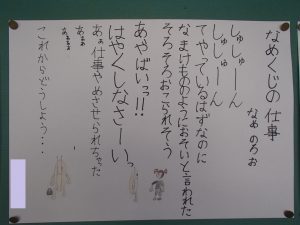 なめくじの仕事
なめ のろお
しゅしゅーん
しゅしゅーん
てやっているはずなのに
なまけもののようにおそいと言われた
そろそろおこられそう
あやばいっ!!
はやくしなさーいっ
あぁ仕事やめさせられちゃた
あぁぁ
あぁぁぁ
これからどうしよう・・・